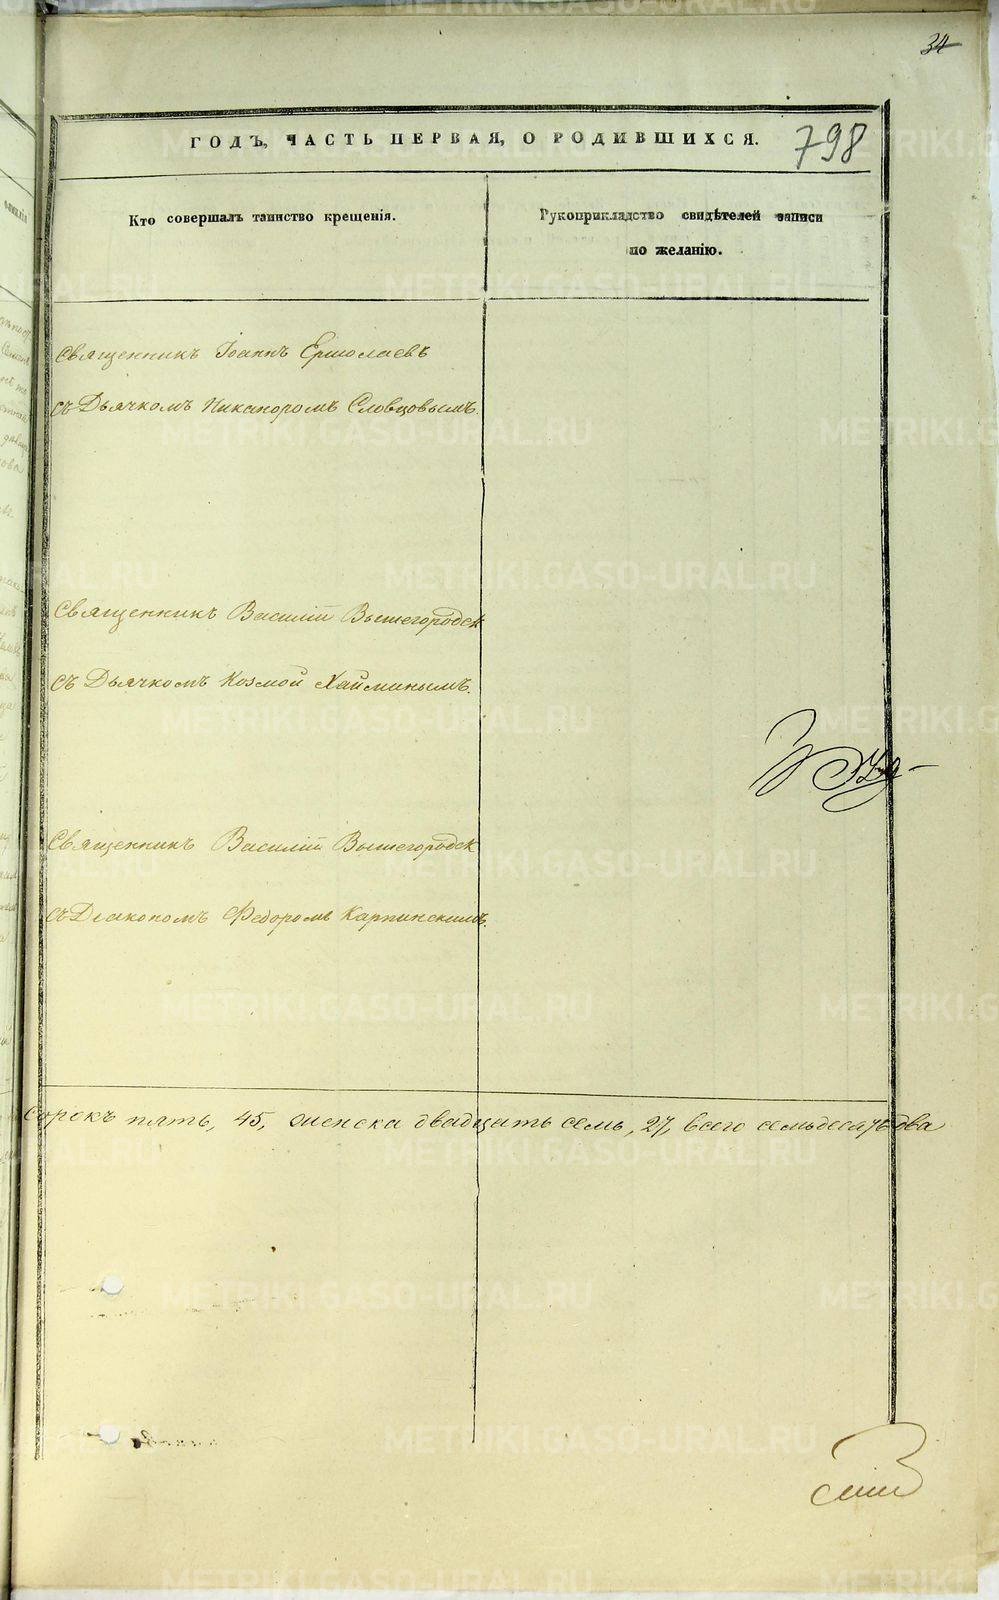 34
ГОДЪ, ЧАСТЬ ПЕРВАЯ, О РОДИВШИХСЯ.
798
Кто совершалъ таинство крещенія.
Рукоприкладство свидѣтелей записи
по желанію.
Священникъ Іоаннъ Ермолаевъ
съ Дьячкомъ Никаноромъ Словцовымъ.
Священникъ Василій Вышегородск
съ Дьячкомъ Козмой Хайминымъ.
Священникъ Василій Вышегородск
съ Діакономъ Федоромъ Карпинскимъ.
сорокъ пять, 45, женска двадцать семь, 27, всего семьдесятъ два
METRIKI.GASO-URAL.RU